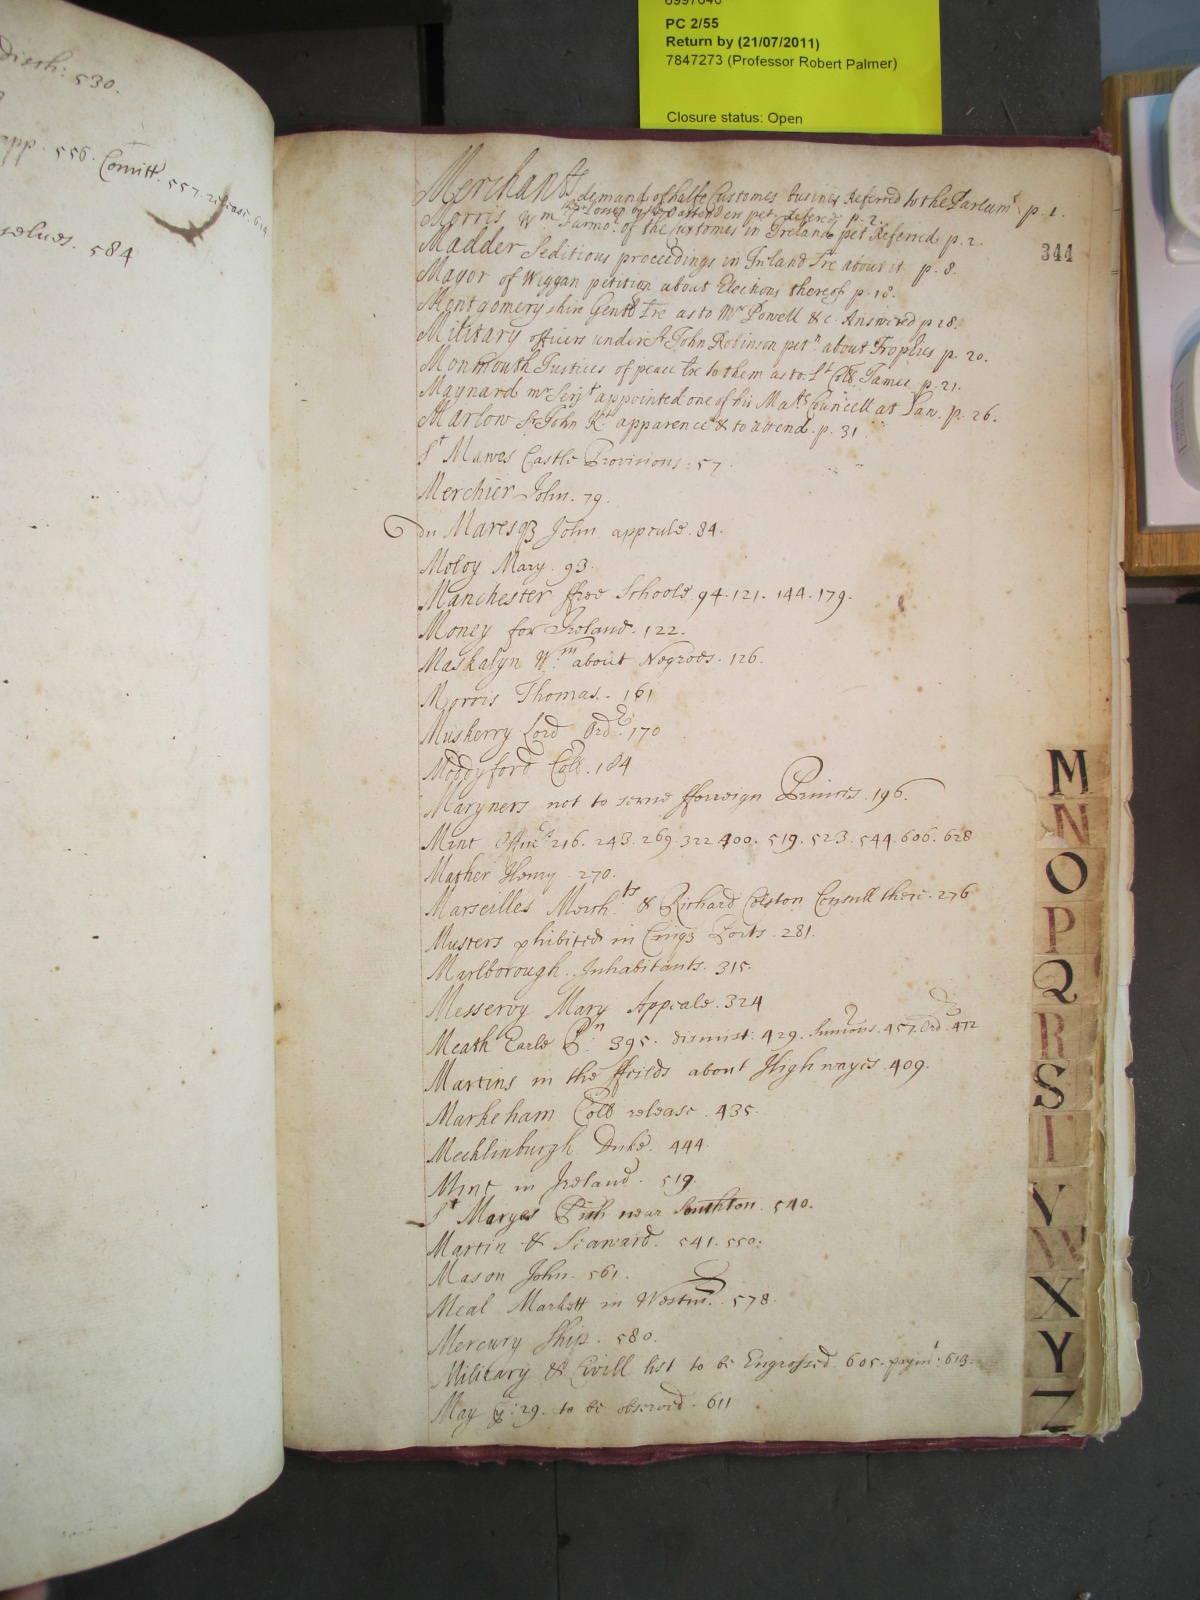 6997646
PC 2/55
Return by (21/07/2011)
7847273 (Professor Robert Palmer)
Closure status: Open
disch: 530.
app. 556. Comitt. 557.
selves. 584
344
Merchants demand of halfe Customes busines Referred to the Parliamt p. 1.
Morris Wm Farmor of the Customes in Ireland pet Referred p. 2.
Madder Seditious proceedings in Ireland Lre about it p. 8.
Mayor of Wiggan petition about Elections thereof p. 18.
Montgomery shire Gentl Lre as to Mr Powell &c. Answered p 18.
Military officers under Sr John Robinson petn about Trophies p. 20.
Monmouth Justices of peace Lre to them as to Lt Coll James p. 21.
Maynard mr Serjt appointed one of his Mats Councell at Law. p. 26.
Marlow Sr John Kt apparence & to attend. p. 31
St Mawes Castle Provisions. 57
Merchier John. 79.
du Maresq John appeale. 84.
Moloy Mary. 93.
Manchester ffree Schoole. 94. 121. 144. 179.
Money for Ireland. 122.
Maskalyn Wm about Negroes. 126.
Morris Thomas. 161
Muskerry Lord Ordr. 170
Moddyford Coll. 184
Maryners not to serve fforreign Princes. 196.
Mint Office 216. 243. 269. 322 400. 519. 523. 544. 606. 628
Mather Henry. 270.
Marseilles Mercht & Richard Colston Consull there. 276
Musters phibited in Cinqz Ports. 281.
Marlborough Inhabitants. 315.
Messervy Mary Appeale. 324
Meath Earle Pn. 395. dismist: 429. Sumons. 457. Ord. 472
Martins in the ffeilds about High wayes. 409.
Markeham Coll release. 435.
Mecklinburgh Duke. 444.
Mint in Ireland. 519
St Maryes Pish near Southton. 540.
Martin & Seaward. 541. 550.
Mason John. 561.
Meal Markett in Westmr. 578.
Mercury Ship. 580.
Military & Civill list to be Engrossed. 605. paymt: 613.
May ye: 29. to be observed. 611
M
N
O
P
Q
R
S
T
V
W
X
Y
Z